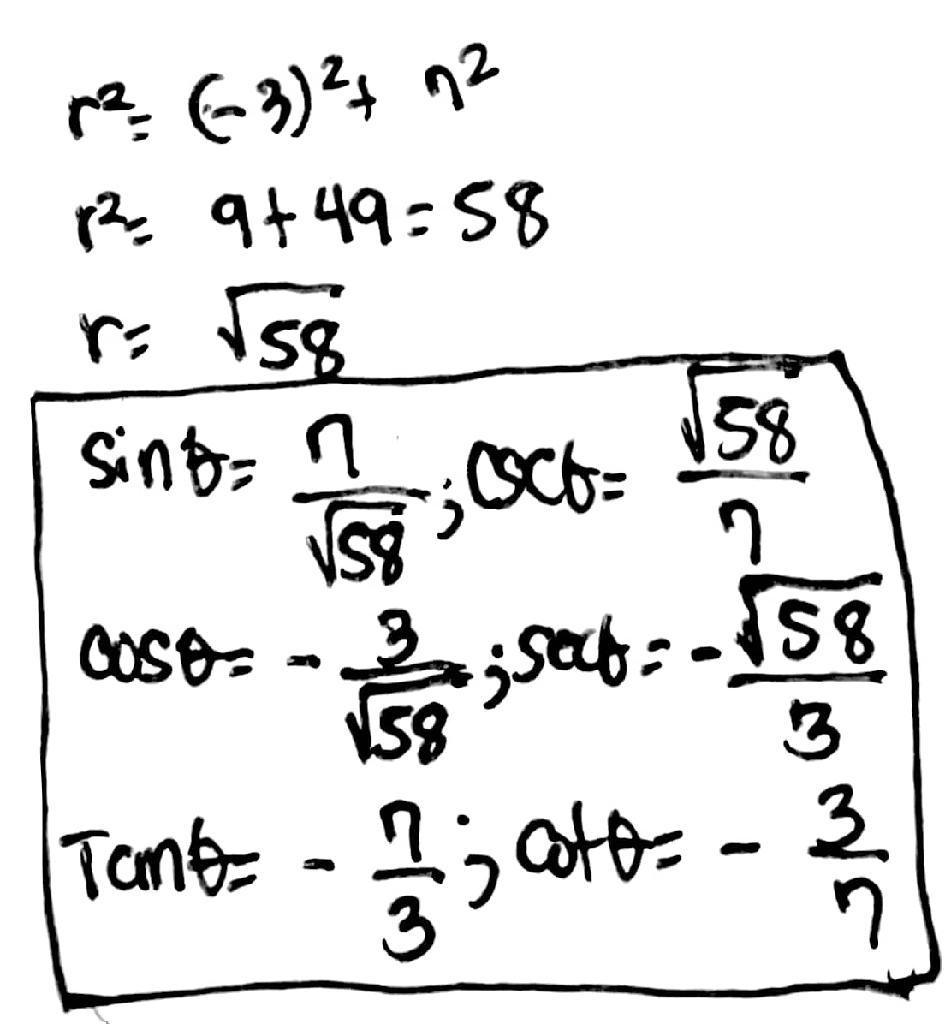 r² = (-3)² + 7²
r² = 9 + 49 = 58
r = √58
Sinθ = 7/√58 ; cscθ = √58/7
cosθ = - 3/√58 ; secθ = - √58/3
Tanθ = - 7/3 ; cotθ = - 3/7